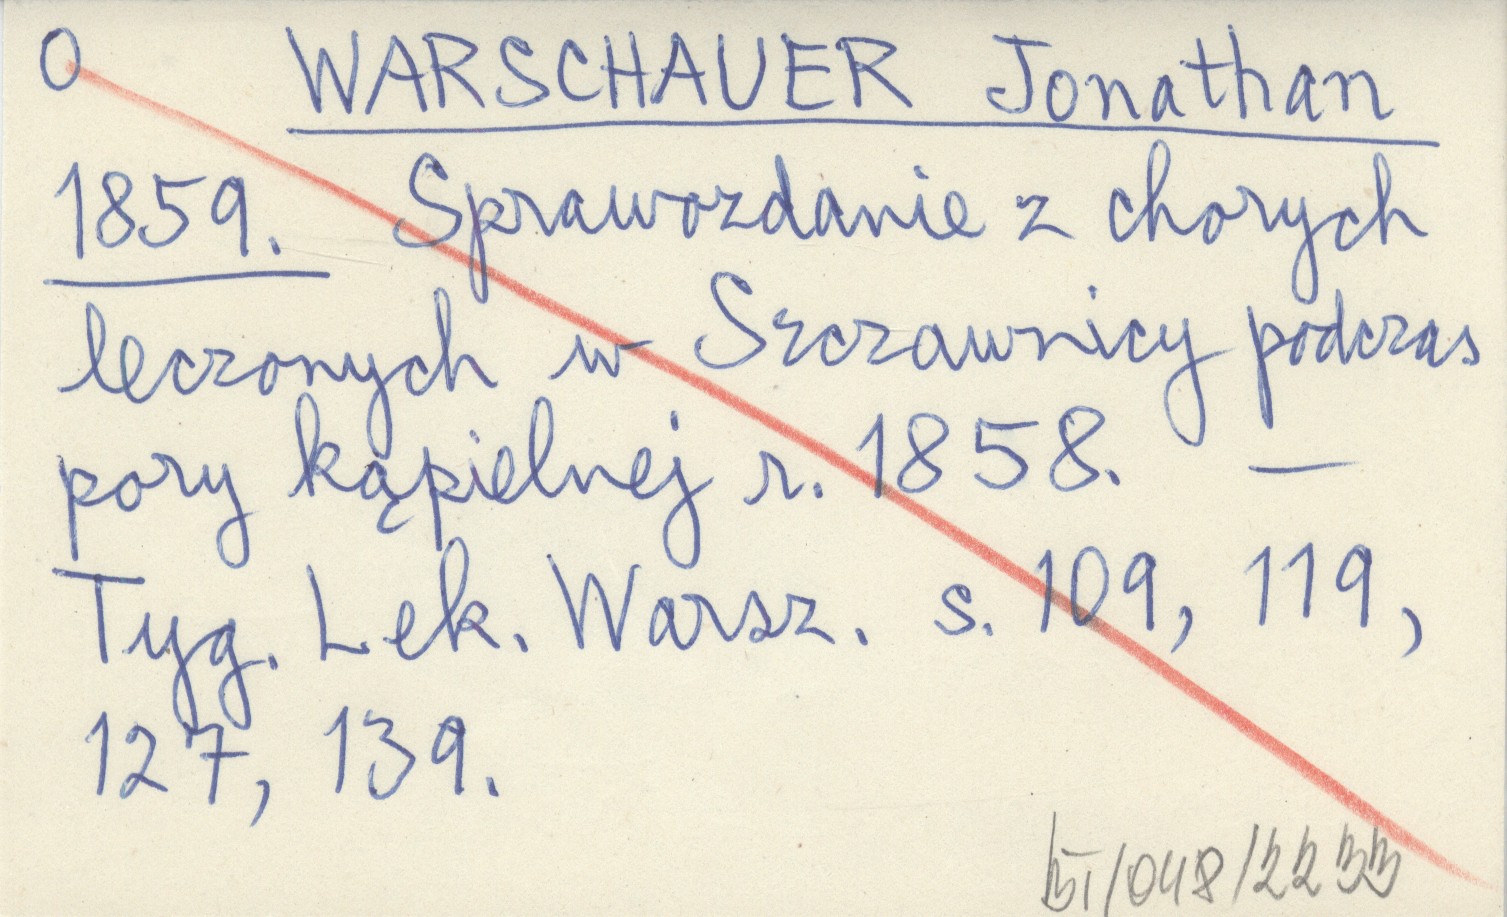 O WARSCHAUER Jonathan
1859. Sprawozdanie z chorych
leczonych w Szczawnicy podczas
pory kąpielnej r. 1858. —
Tyg. Lek. Warsz. s. 109, 119,
127, 139.
/048/2233